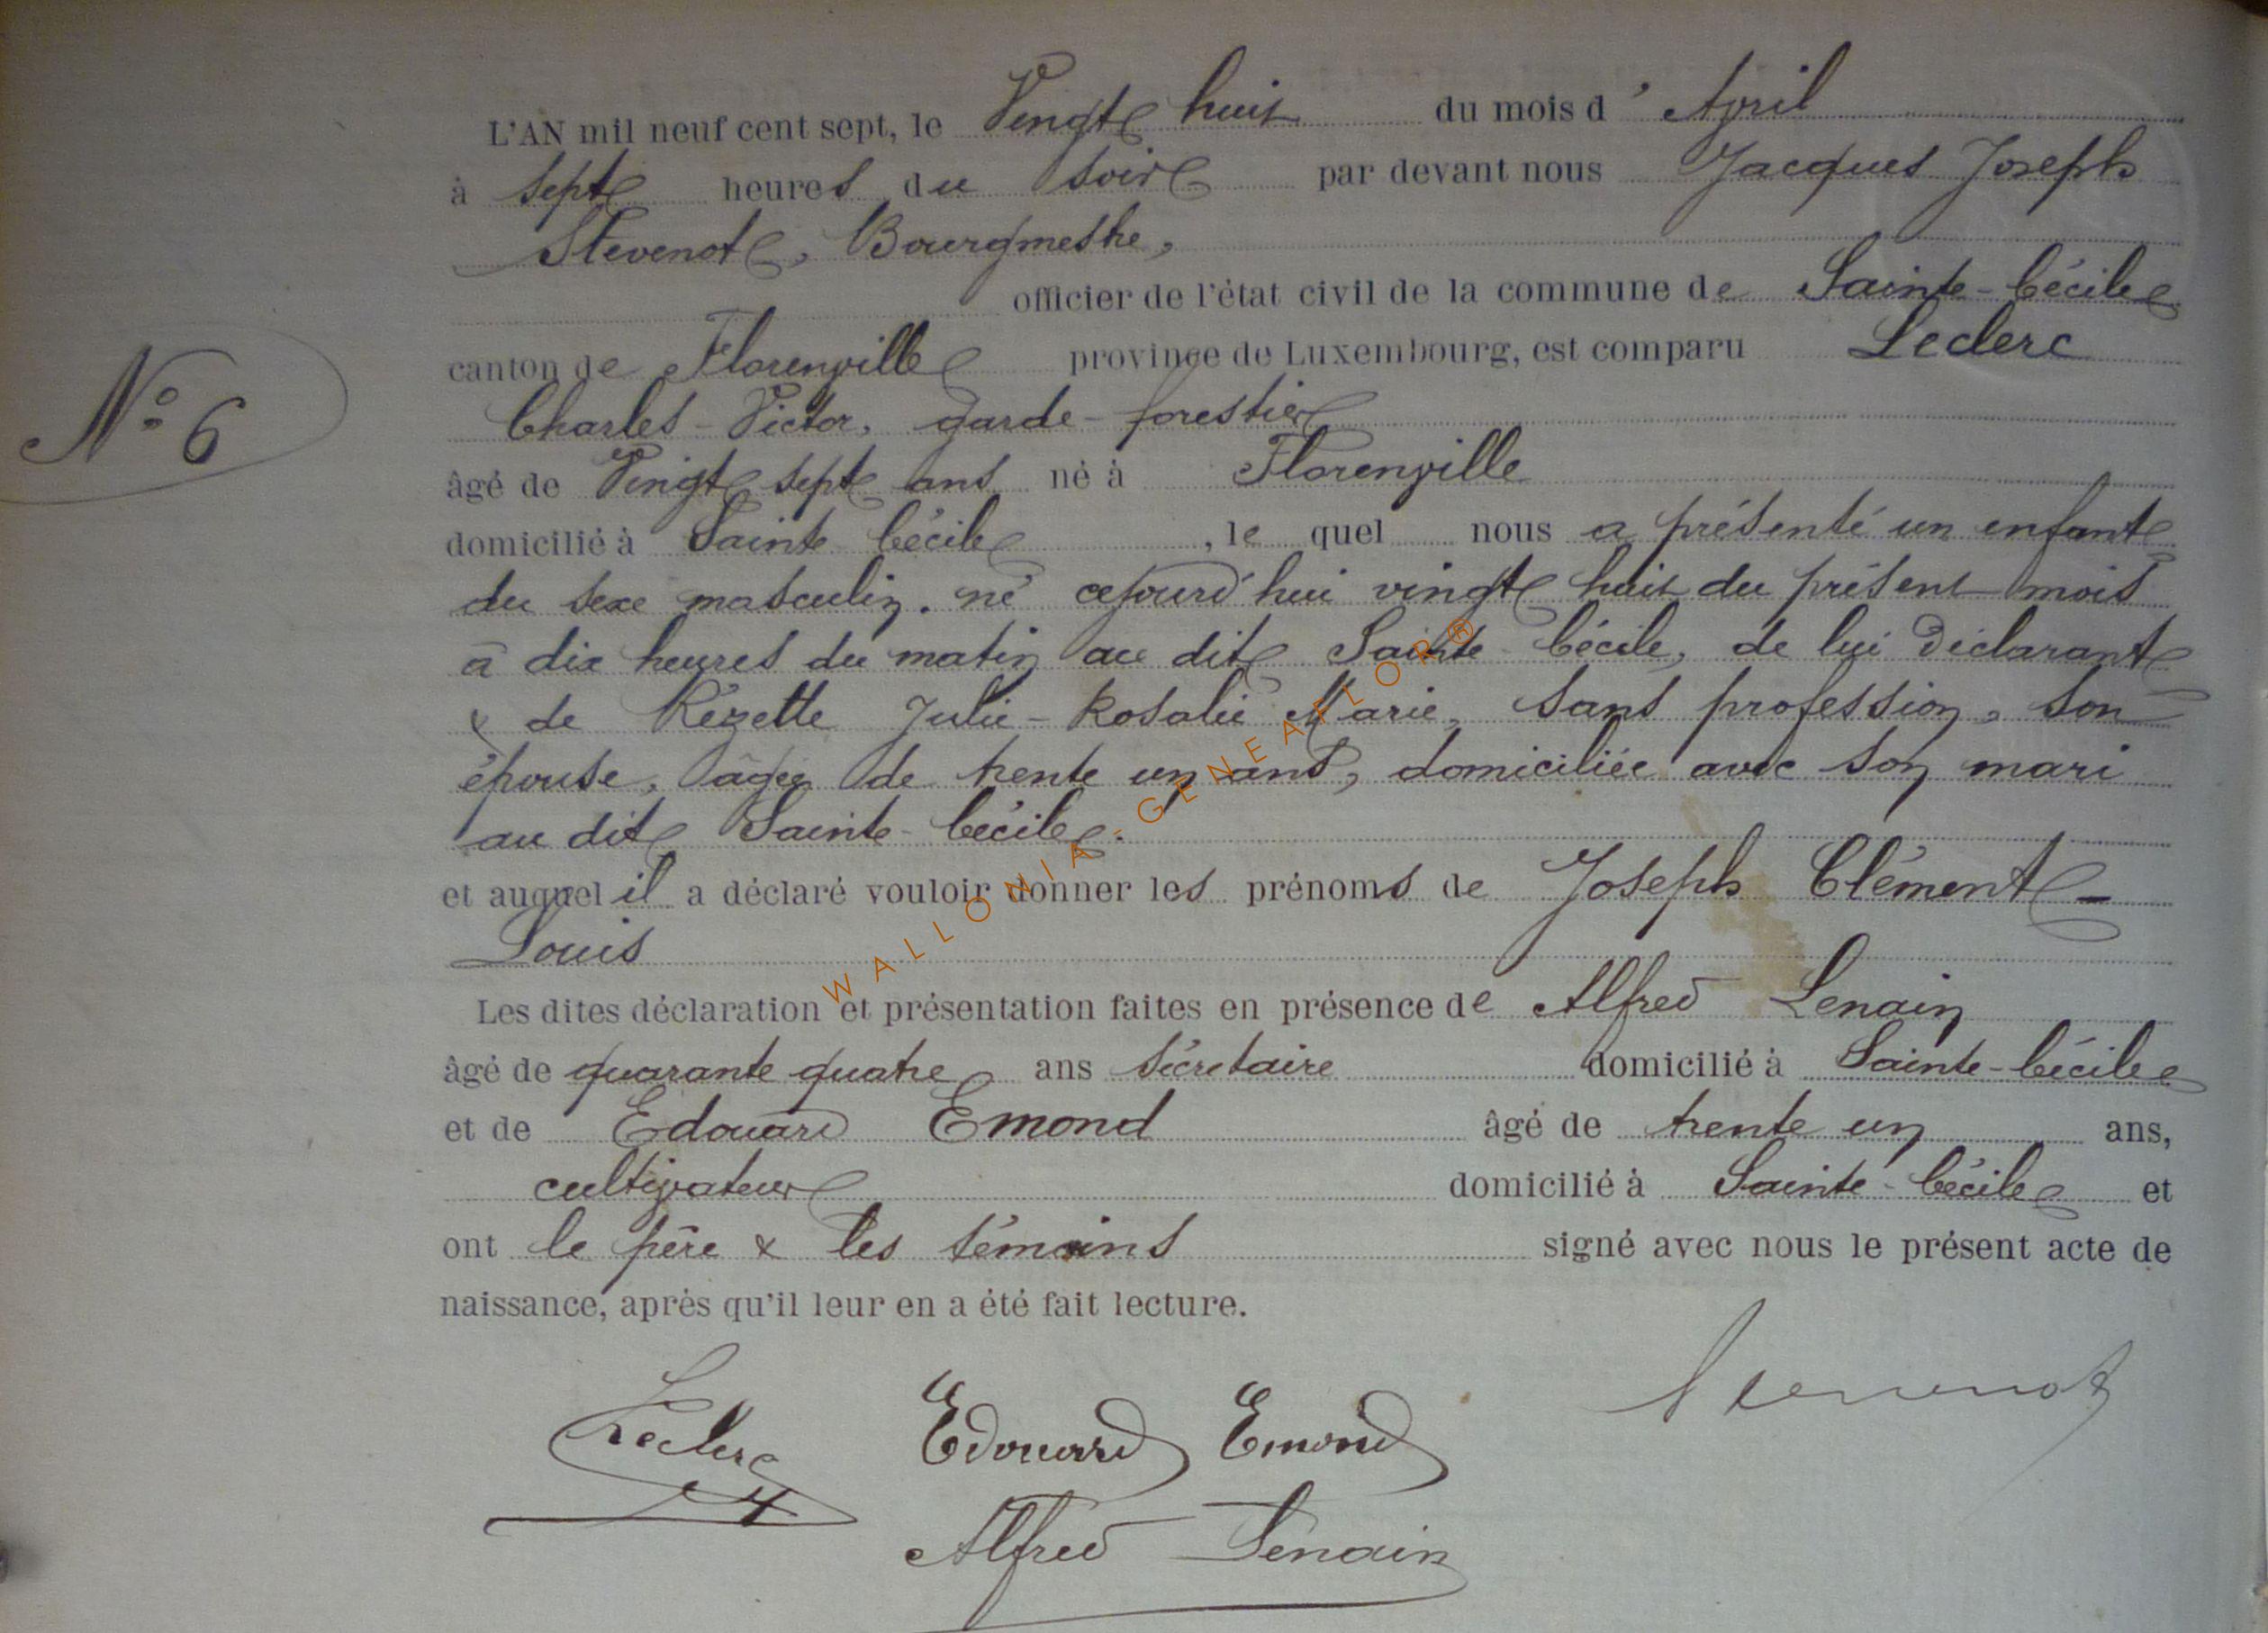 L'AN mil neuf cent sept, le Vingt huit du mois d'Avril
à sept heures du soir par devant nous Jacques Joseph
Stevenot, Bourgmestre,
officier de l'état civil de la commune de Sainte-Cécile
canton de Florenville province de Luxembourg, est comparu Leclerc
N° 6
Charles-Victor, garde-forestier
âgé de Vingt sept ans né à Florenville
domicilié à Sainte Cécile, le quel nous a présenté un enfant
du sexe masculin. né cejourd'hui vingt huit du présent mois
à dix heures du matin au dit Sainte-Cécile, de lui Déclarant
& de Rézette Julie-Rosalie Marie, sans profession, son
épouse, âgée de trente un ans, domiciliée avec son mari
au dit Sainte-Cécile.
et auquel il a déclaré vouloir donner les prénoms de Joseph Clément-
Louis
Les dites déclaration et présentation faites en présence de Alfred Lenain
âgé de quarante quatre ans sécretaire domicilié à Sainte-Cécile
et de Edouard Emond âgé de trente un ans,
cultivateur domicilié à Sainte-Cécile et
ont le père & les témoins signé avec nous le présent acte de
naissance, après qu'il leur en a été fait lecture.
Leclerc Edouard Emond Stevenot
Alfred Lenain
WALLONIA - GENEAFLOR®